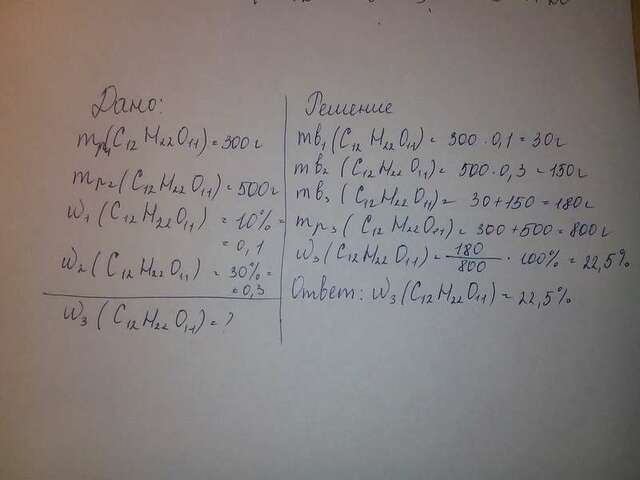 Дано:
mр₁(C₁₂H₂₂O₁₁)=300г
mр₂(C₁₂H₂₂O₁₁)=500г
W₁(C₁₂H₂₂O₁₁)=10%=
=0,1
W₂(C₁₂H₂₂O₁₁)=30%=
=0,3
W₃(C₁₂H₂₂O₁₁)=?
Решение
mв₁(C₁₂H₂₂O₁₁)=300·0,1=30г
mв₂(C₁₂H₂₂O₁₁)=500·0,3=150г
mв₃(C₁₂H₂₂O₁₁)=30+150=180г
mр₃(C₁₂H₂₂O₁₁)=300+500=800г
W₃(C₁₂H₂₂O₁₁)=180/800·100%=22,5%
Ответ: W₃(C₁₂H₂₂O₁₁)=22,5%